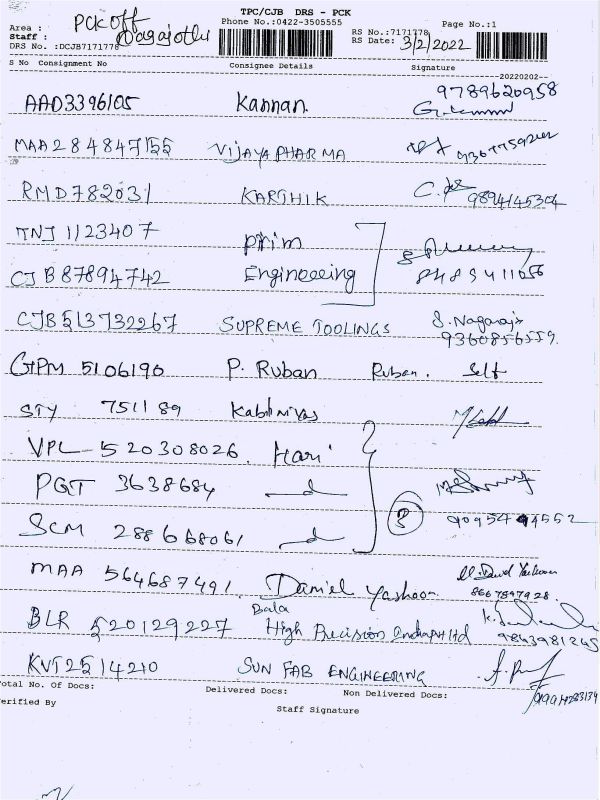 TPC/CJB DRS - PCK
Area : PCK off Phone No.:0422-3505555 Page No.:1
Staff : Nagajothi RS No.:7171778
DRS No. :DCJB7171778 RS Date: 3/2/2022
S No Consignment No Consignee Details Signature
--20220202--
AAD3396105 Kannan 9789620958
MAA284847155 VIJAYA PHARMA
RMD782031 KARTHIK 9894145304
TNJ 1123407 prim
CJB87894742 Engineering 8489411056
CJB513732267 SUPREME TOOLINGS S. Nagaraj 9360856559.
GPM 5106190 P. Ruban Ruban. Self
STY 751189 Kabilnivas
VPL 520308026. Hari
PGT 3638684
SCM 288668061 3 9095494552
MAA 564687491. Daniel Yashoon 8667897928
BLR 520129227 Bala High Precision India pvt ltd 9843981245
KVT2514210 SUN FAB ENGINEERING
Total No. Of Docs: Delivered Docs: Non Delivered Docs:
Verified By Staff Signature